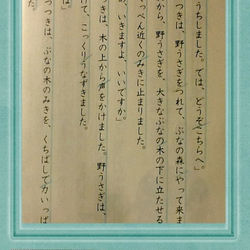 うちしました。では、どうぞこちらへ。」
つつきは、野うさぎをつれて、ぶなの森にやって来ま
から、野うさぎを、大きなぶなの木の下に立たせる
っぺん近くのみきに止まりました。
、いきますよ、いいですか。」
つきは、木の上から声をかけました。野うさぎは、
けて、こっくりうなずきました。
は」
つつきは、ぶなの木のみきを、くちばしで力いっぱ
た。